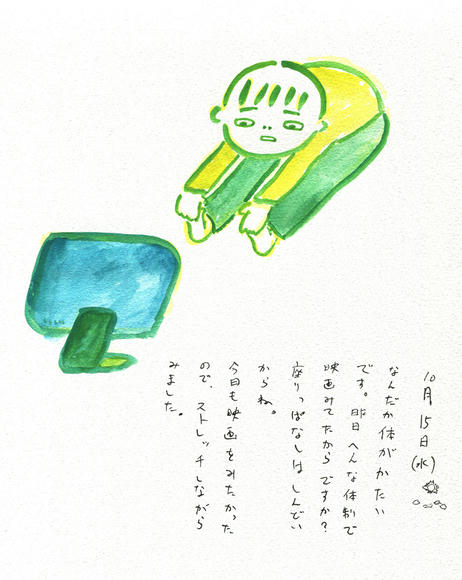 10月15日(水)
なんだか体がかたい
です。昨日へんな体制で
映画みてたからですか?
座りっぱなしはしんどい
からね。
今日も映画をみたかった
ので、ストレッチしながら
みました。